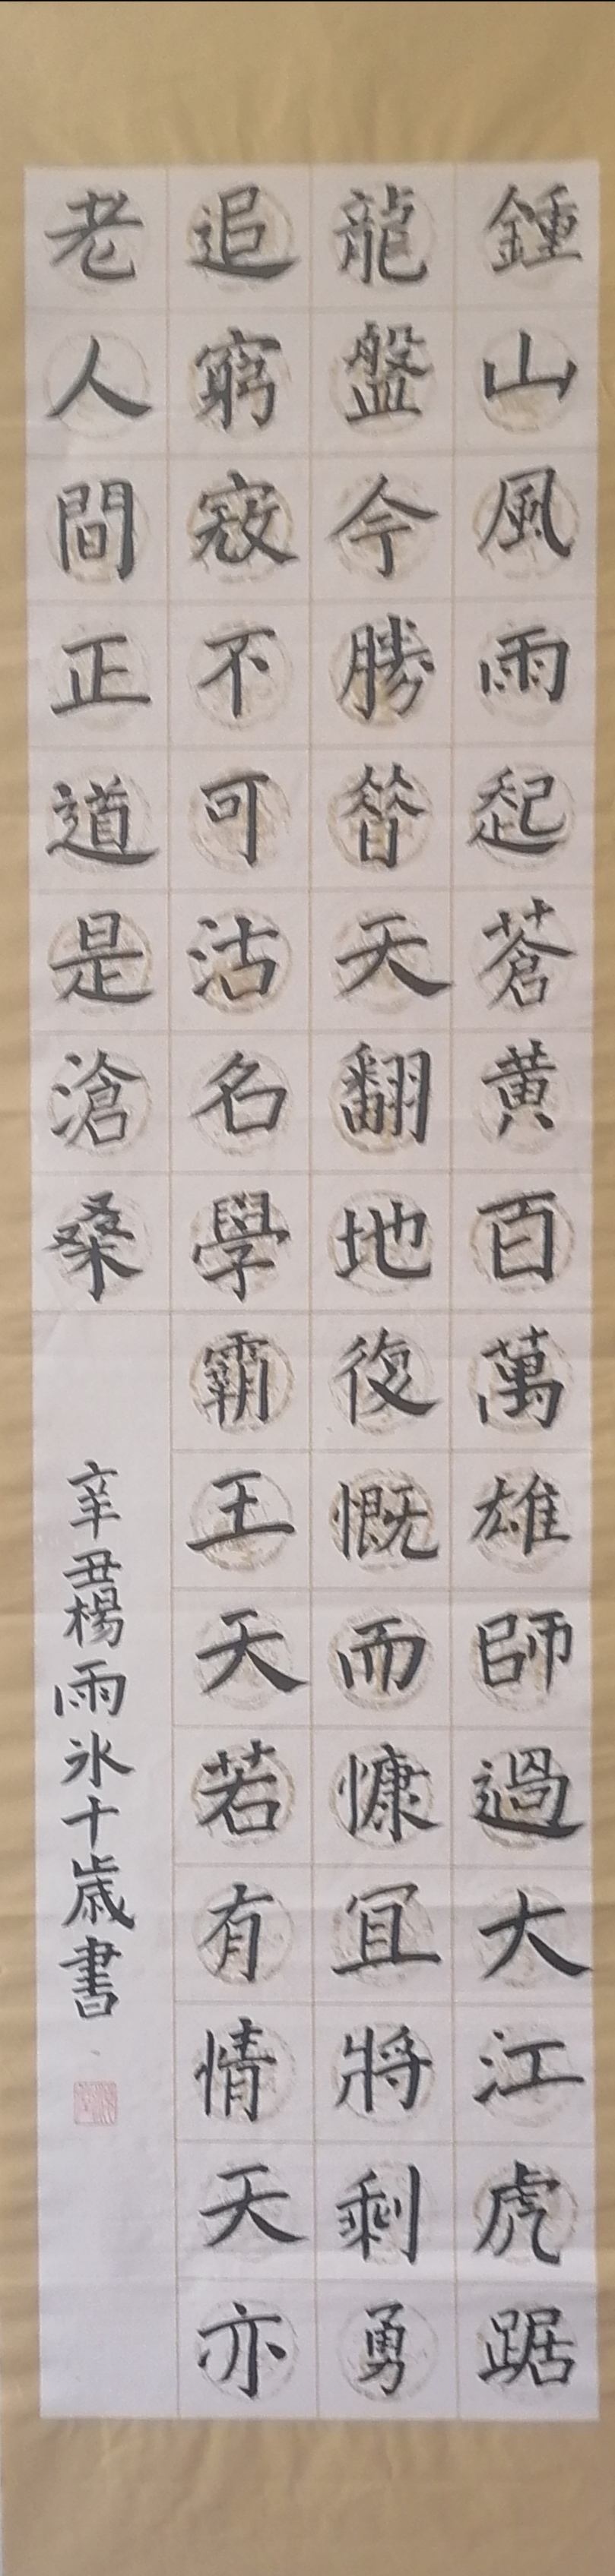 鍾山風雨起蒼黃百萬雄師過大江虎踞
龍盤今勝昔天翻地復慨而慷宜將剩勇
追窮寇不可沽名學霸王天若有情天亦
老人間正道是滄桑
辛丑楊雨氷十歲書